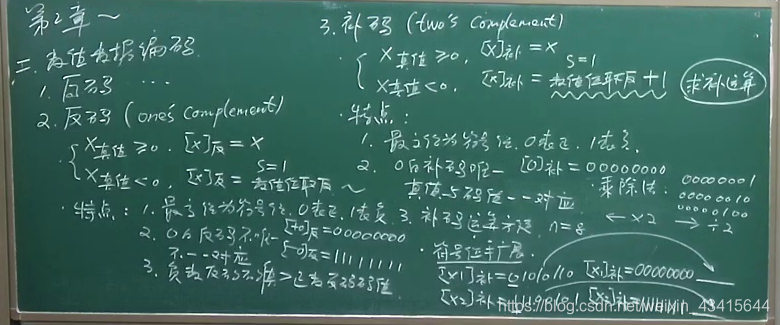 第2章~
二. 数值数据编码
1. 原码 ...
2. 反码 (one's complement)
X真值≥0, [X]反=X
S=1
X真值<0, [X]反=数值位取反~
·特点: 1. 最高位为符号位, 0表正, 1表负
2. 0的反码不唯一 [+0]反=00000000
[-0]反=11111111
不一一对应
3. 负数反码
3. 补码 (two's complement)
X真值≥0, [X]补=X
S=1
X真值<0, [X]补=数值位取反+1 求补运算
·特点:
1. 最高位为符号位, 0表正, 1表负.
2. 0的补码唯一 [0]补=00000000
真值与码值一一对应
3. 补码运算方便, n=8
·乘除法: 00000001
00000010
00000100
←×2 →÷2
·符号位扩展
[X1]补=01010110 [X1]补=00000000
[X2]补=
https://blog.csdn.net/weixin_43415644